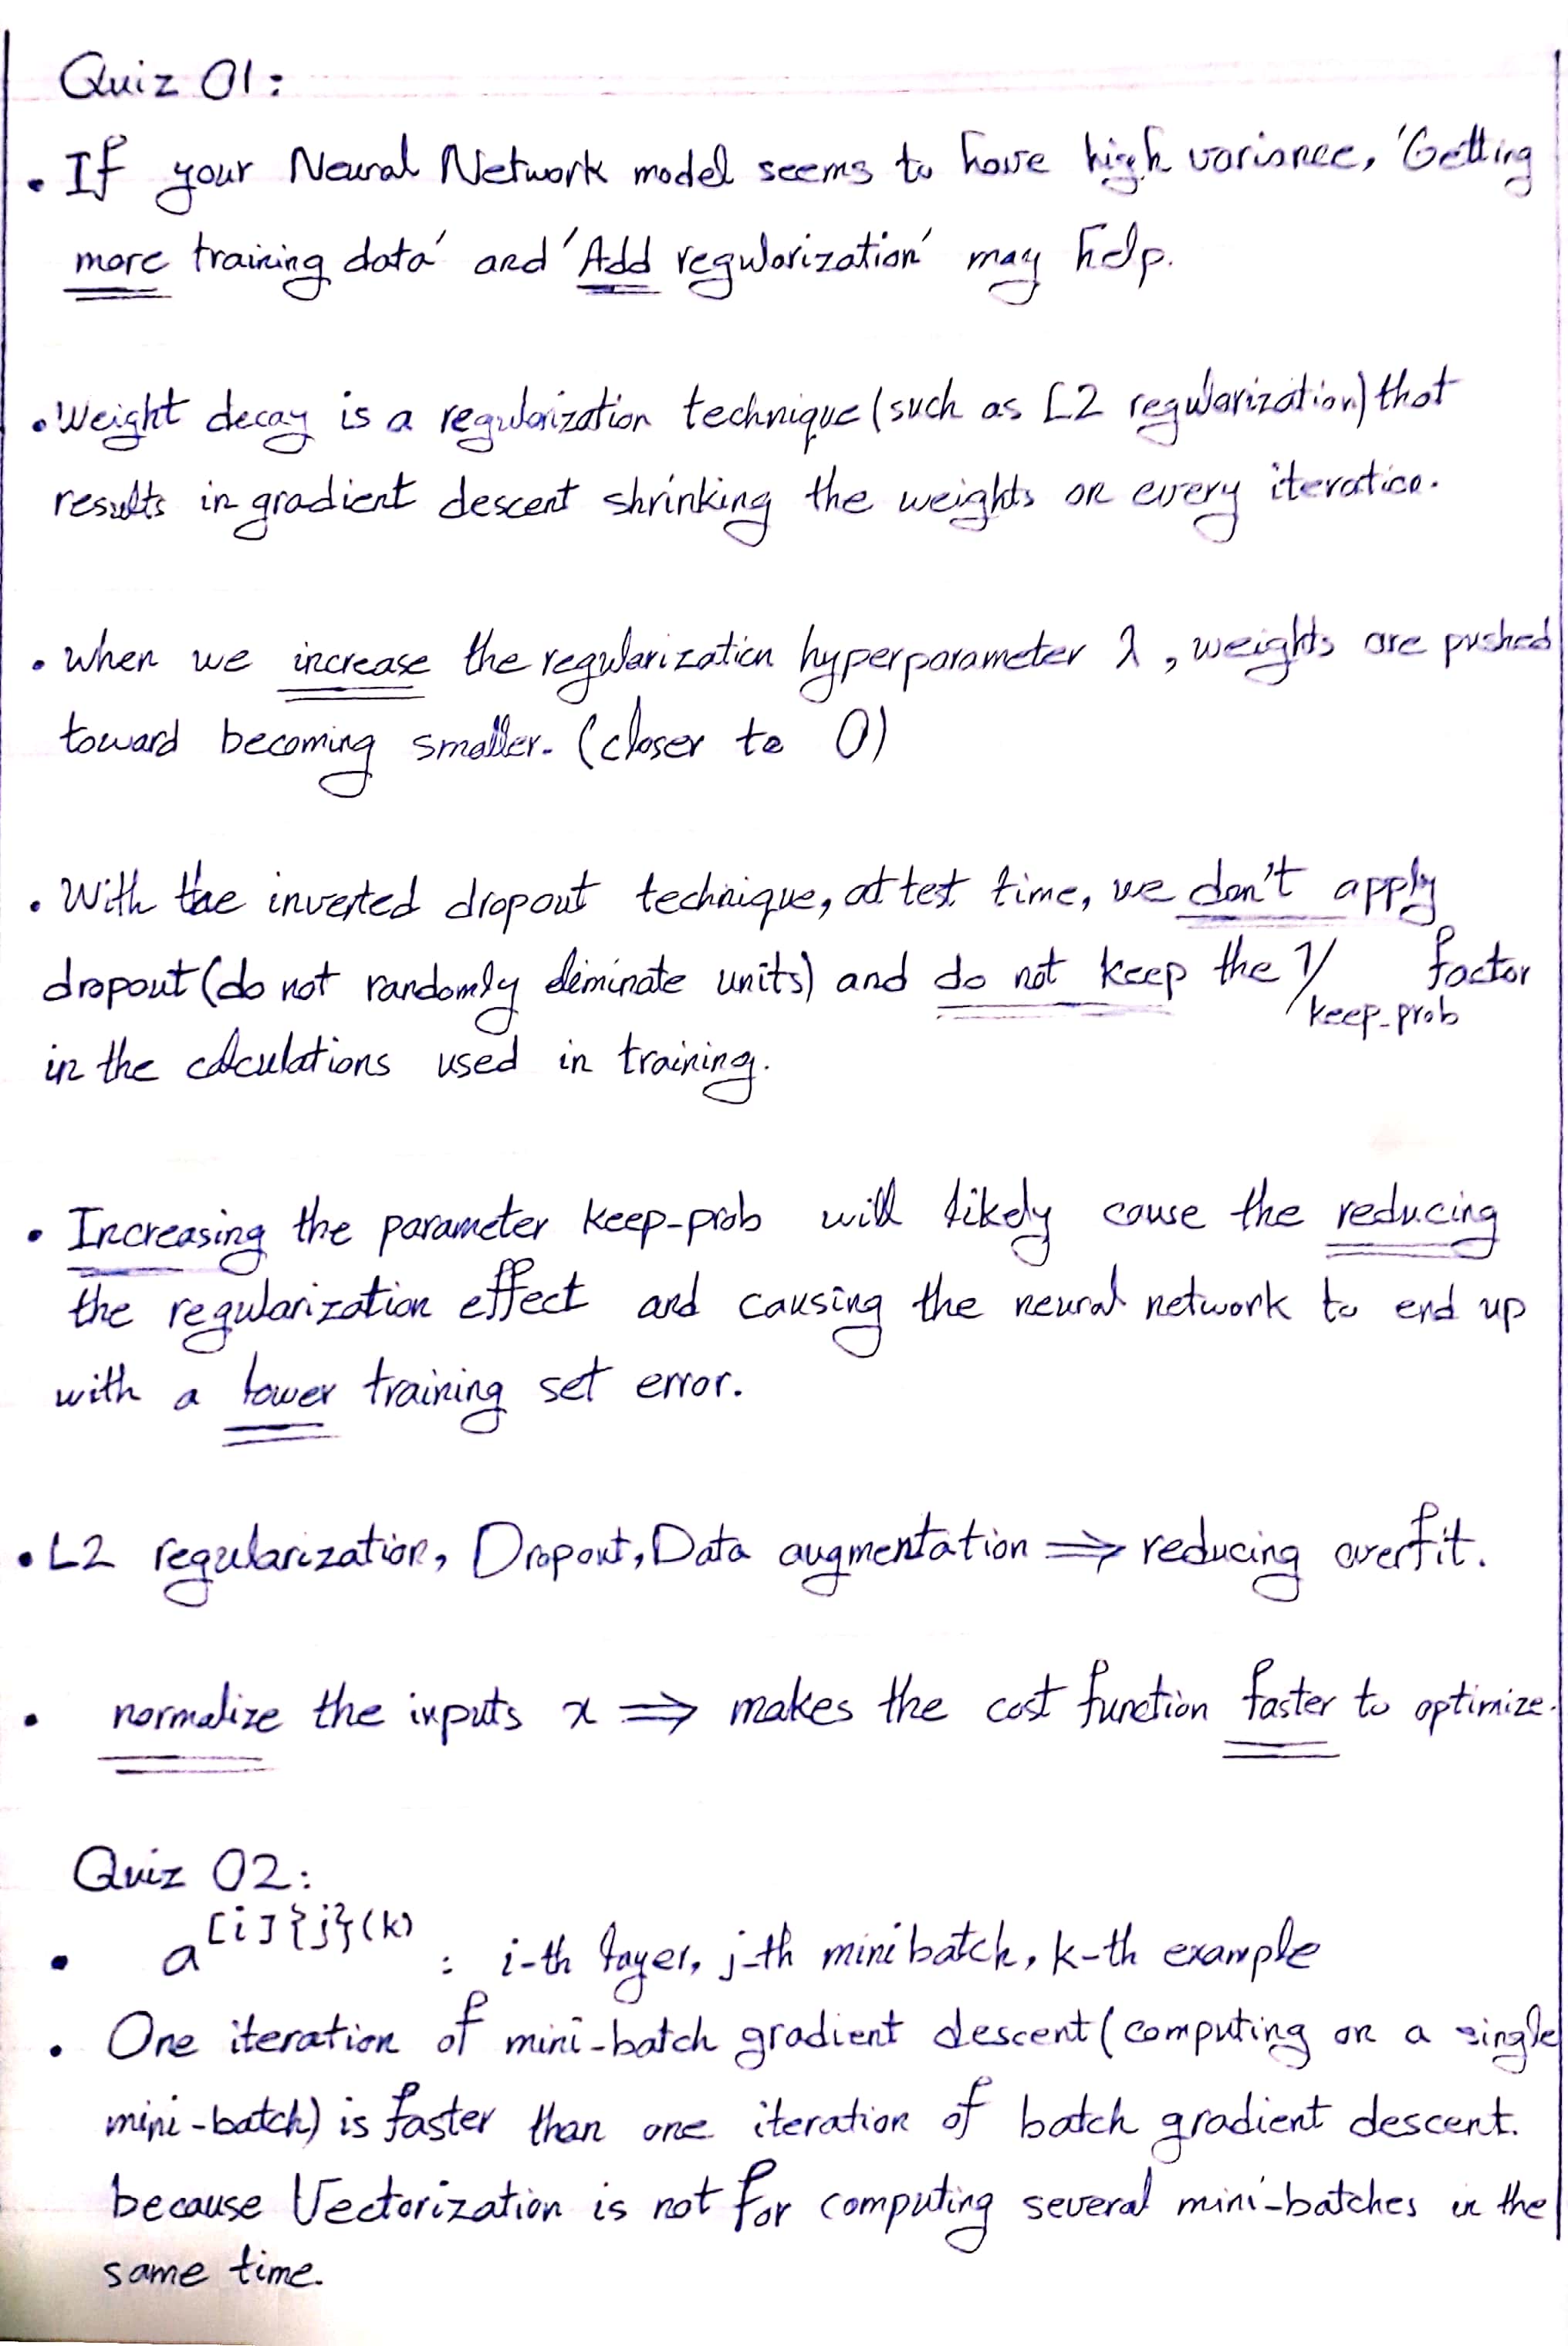 Quiz 01:
• If your Neural Network model seems to have high variance, 'Getting
more training data' and 'Add regularization' may help.
• Weight decay is a regularization technique (such as L2 regularization) that
results in gradient descent shrinking the weights on every iteration.
• When we increase the regularization hyperparameter λ, weights are pushed
toward becoming smaller. (closer to 0)
• With the inverted dropout technique, at test time, we don't apply
dropout (do not randomly eliminate units) and do not keep the 1/keep_prob factor
in the calculations used in training.
• Increasing the parameter keep-prob will likely cause the reducing
the regularization effect and causing the neural network to end up
with a lower training set error.
• L2 regularization, Dropout, Data augmentation ⇒ reducing overfit.
• normalize the inputs x ⇒ makes the cost function faster to optimize.
Quiz 02:
• a[i]{j}(k) : i-th layer, j-th minibatch, k-th example
• One iteration of mini-batch gradient descent (computing on a single
mini-batch) is faster than one iteration of batch gradient descent.
because Vectorization is not for computing several mini-batches in the
same time.